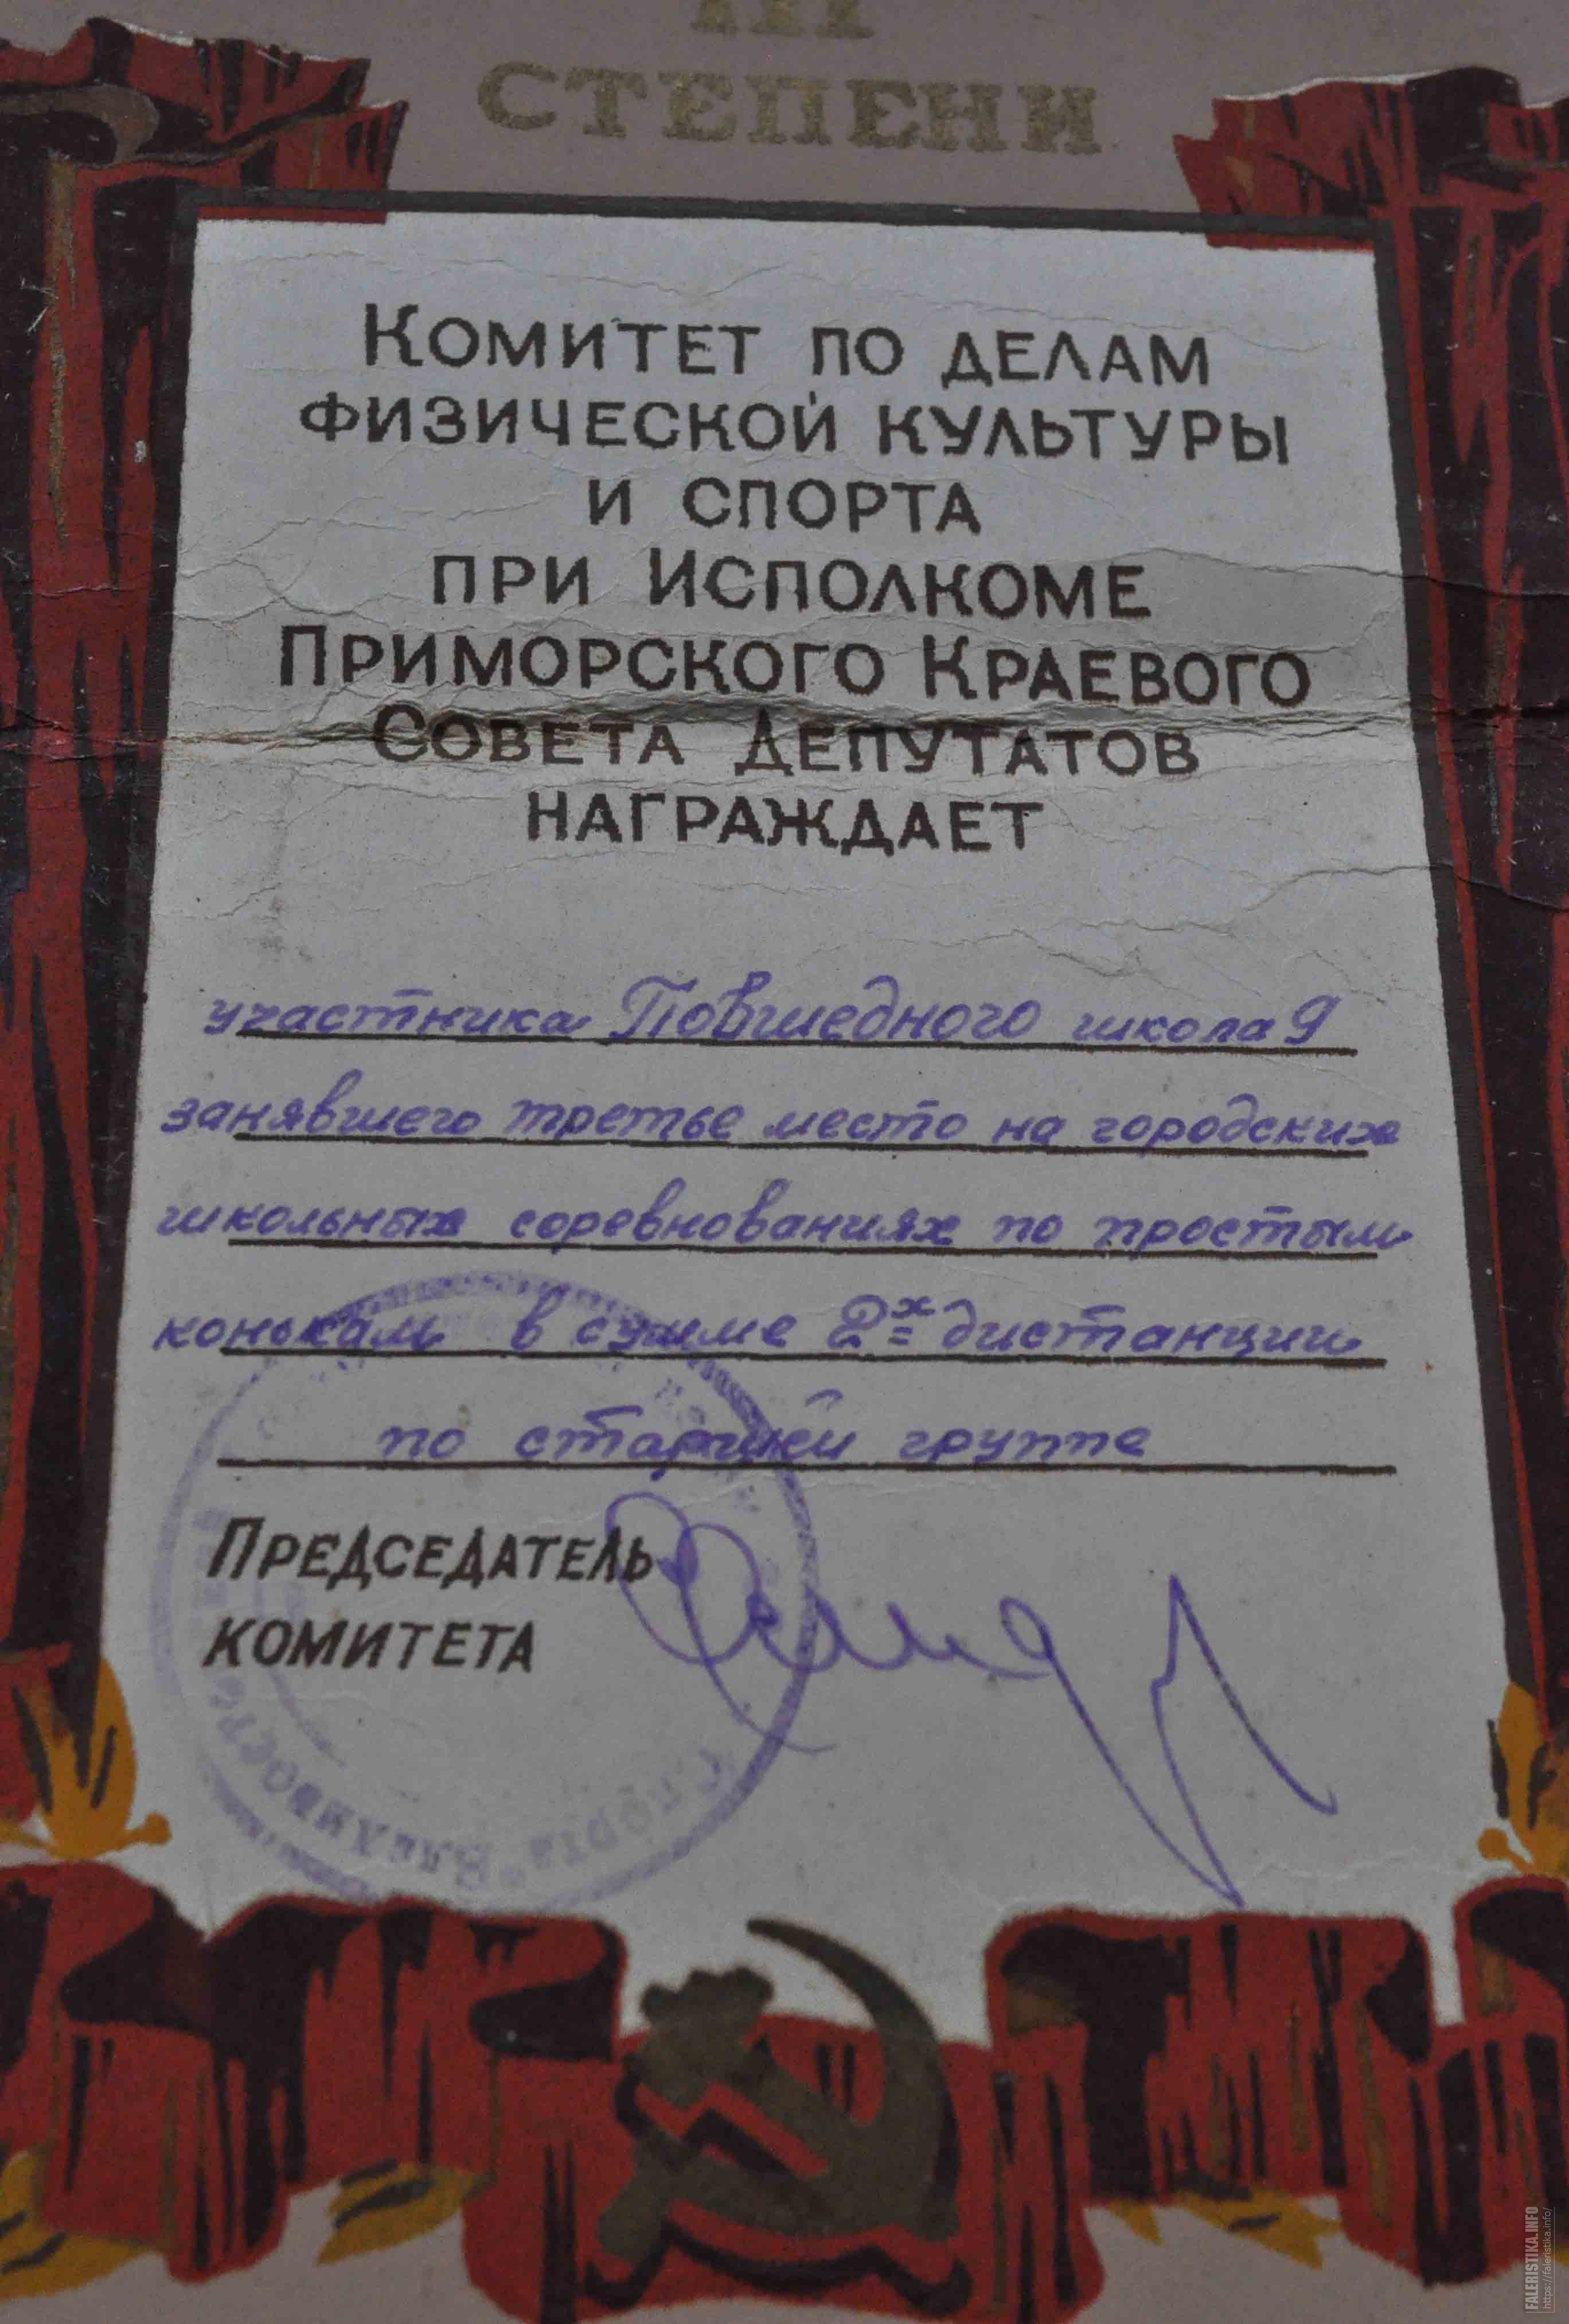 III
СТЕПЕНИ
КОМИТЕТ ПО ДЕЛАМ
ФИЗИЧЕСКОЙ КУЛЬТУРЫ
И СПОРТА
ПРИ ИСПОЛКОМЕ
ПРИМОРСКОГО КРАЕВОГО
СОВЕТА ДЕПУТАТОВ
НАГРАЖДАЕТ
участника Повшедного школа 9
занявшего третье место на городских
школьных соревнованиях по простым
конькам в сумме 2х дистанции
по старшей группе
ПРЕДСЕДАТЕЛЬ
КОМИТЕТА
Спорта
FALERISTIKA.INFO
https://faleristika.info/